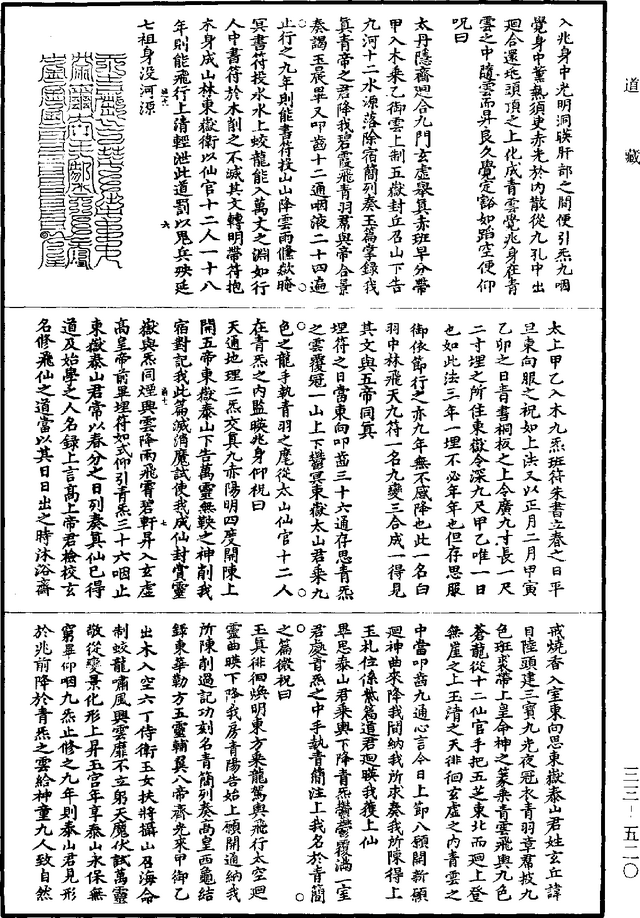 道藏
入兆身中光明洞暎肝部之間便引炁九咽
覺身中薰熱須臾赤光於內散從九孔中出
迴合還兆頭頂之上化成青雲覺兆身在青
雲之中隨雲而昇良久覺定豁如蹈空便仰
呪曰
太丹隱齋迴合九門玄虛舉真赤班早分帶
甲入木乘乙御雲上制五嶽封丘召山下告
九河十二水源落除宿簡列奏玉篇掌錄我
真青帝之君降我碧霞飛青羽羣與帝合景
奏謁玉晨畢又叩齒十二通咽液二十四過
止行之九年則能書符投山山降雲雨倏欻晻
冥書符投水水上蛟龍能入萬丈之淵如行
人中書符於木削之不滅其文轉明帶符抱
本身成山林東嶽衛以仙官十二人一十八
年則能飛行上清輕泄此道罰以鬼兵殃延
七祖身沒河源
太上甲乙入木九炁班符朱書立春之日平
旦東向服之祝如上法又以正月二月甲寅
乙卯之日青書桐板之上令廣九寸長一尺
二寸埋之所住東嶽令深九尺甲乙唯一日
也如此法三年一埋不必年年也但存思服
御依節行之亦九年無不感降也此一名白
羽中林飛天九符一名九變三合成一得見
其文與五帝同真
埋符之日當東向叩齒三十六通存思青炁
之雲覆冠一山上下鬱冥東嶽太山君乘九
色之龍手執青羽之麾從太山仙官十二人
在青炁之內監暎兆身仰祝曰
天通地理二炁交真九赤陽明四度開陳上
開五帝東嶽泰山下告萬靈無鞅之神削我
宿對記我此篇滅消魔試使我成仙封賞靈
嶽與炁同煙興雲降雨飛霄碧軒昇入玄虛
高皇帝前畢埋符如式仰引青炁三十六咽止
東嶽泰山君常以春分之日列奏真仙已得
道及始學之人名錄上言高上帝君檢校玄
名修飛仙之道當以其日日出之時沐浴齋
戒燒香入室東向思東嶽泰山君姓玄丘諱
目陸頭建三寶九光夜冠衣青羽章帬披九
色班裘帶上皇命神之篆乘青雲飛輿九色
蒼龍從十二仙官手把五芝東北而迴上登
無崖之上玉清之天徘徊玄虛之內青雲之
中當叩齒九通心言今日上節八願開新願
迴神曲來降我間納我所求奏我所陳得上
玉札位係紫篇道君迴暎我獲上仙
畢思泰山君乘輿下降青炁鬱鬱覆滿一室
君處青炁之中手執青簡注上我名於青簡
之篇微祝曰
玉真徘徊煥明東方乘龍駕輿飛行太空迴
靈曲暎下降我房青陽告始上願開通納我
所陳削過記功刻名青簡列奏高皇西龜結
錄東華勒方五靈輔翼八帝齊光來甲御乙
出木入空六丁侍衛玉女扶將攝山召海命
制蛟龍嘯風興雲靡不立躬天魔伏試萬靈
敬從變景化形上昇五宮年享泰山永保無
窮畢仰咽九炁止修之九年則泰山君見形
於兆前降於青炁之雲給神童九人致自然
三三-五二〇